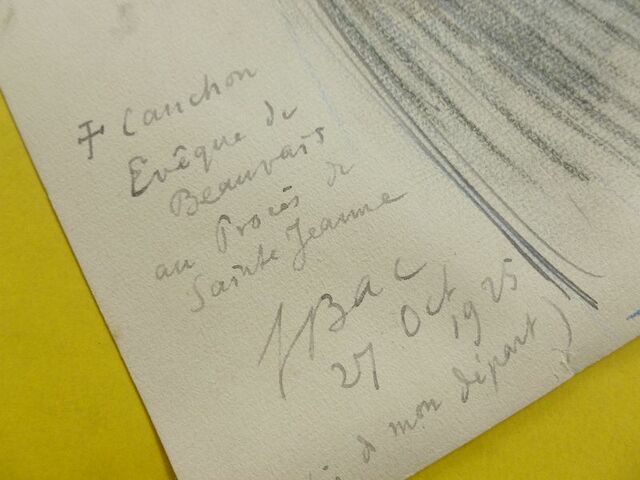 ‡ Cauchon
Evêque de
Beauvais
au Procès de
Sainte Jeanne
JBac
27 Oct 1925
à mon départ)